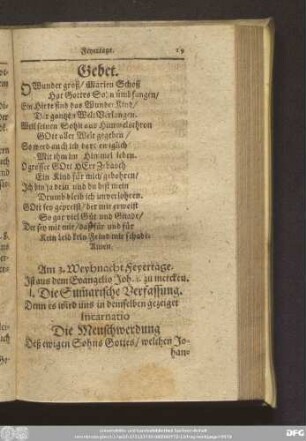 Feyertage. 19
Gebet.
O Wunder groß/ Marien Schoß
Hat Gottes Sohn ümbfangen/
Ein Hirte find das Wunder Kind/
Der gantzen Welt Verlangen.
Weil seinen Sohn aus Himmelsthron
GOtt aller Welt gegeben/
So werd auch ich dort ewiglich
Mit ihm im Himmel leben.
O grosser GOtt HErr Zebaoth
Ein Kind für mich gebohren/
Ich bin ja dein und du bist mein
Drumb bleib ich unverlohren.
GOtt sey gepreist/ der mir erweist
So gar viel Güt und Gnade/
Der sey mit mir/ daß für und für
Kein Feind mir schade
Amen.
Am 3. Weyhnacht Feyertage.
Ist aus dem Evangelio Joh. 1. zu mercken.
I. Die Sumarische Verfassung.
Denn es wird uns in demselben gezeiget
Incarnatio
Die Menschwerdung
Deß ewigen Sohns Gottes/ welchen Jo-
han-
DFG